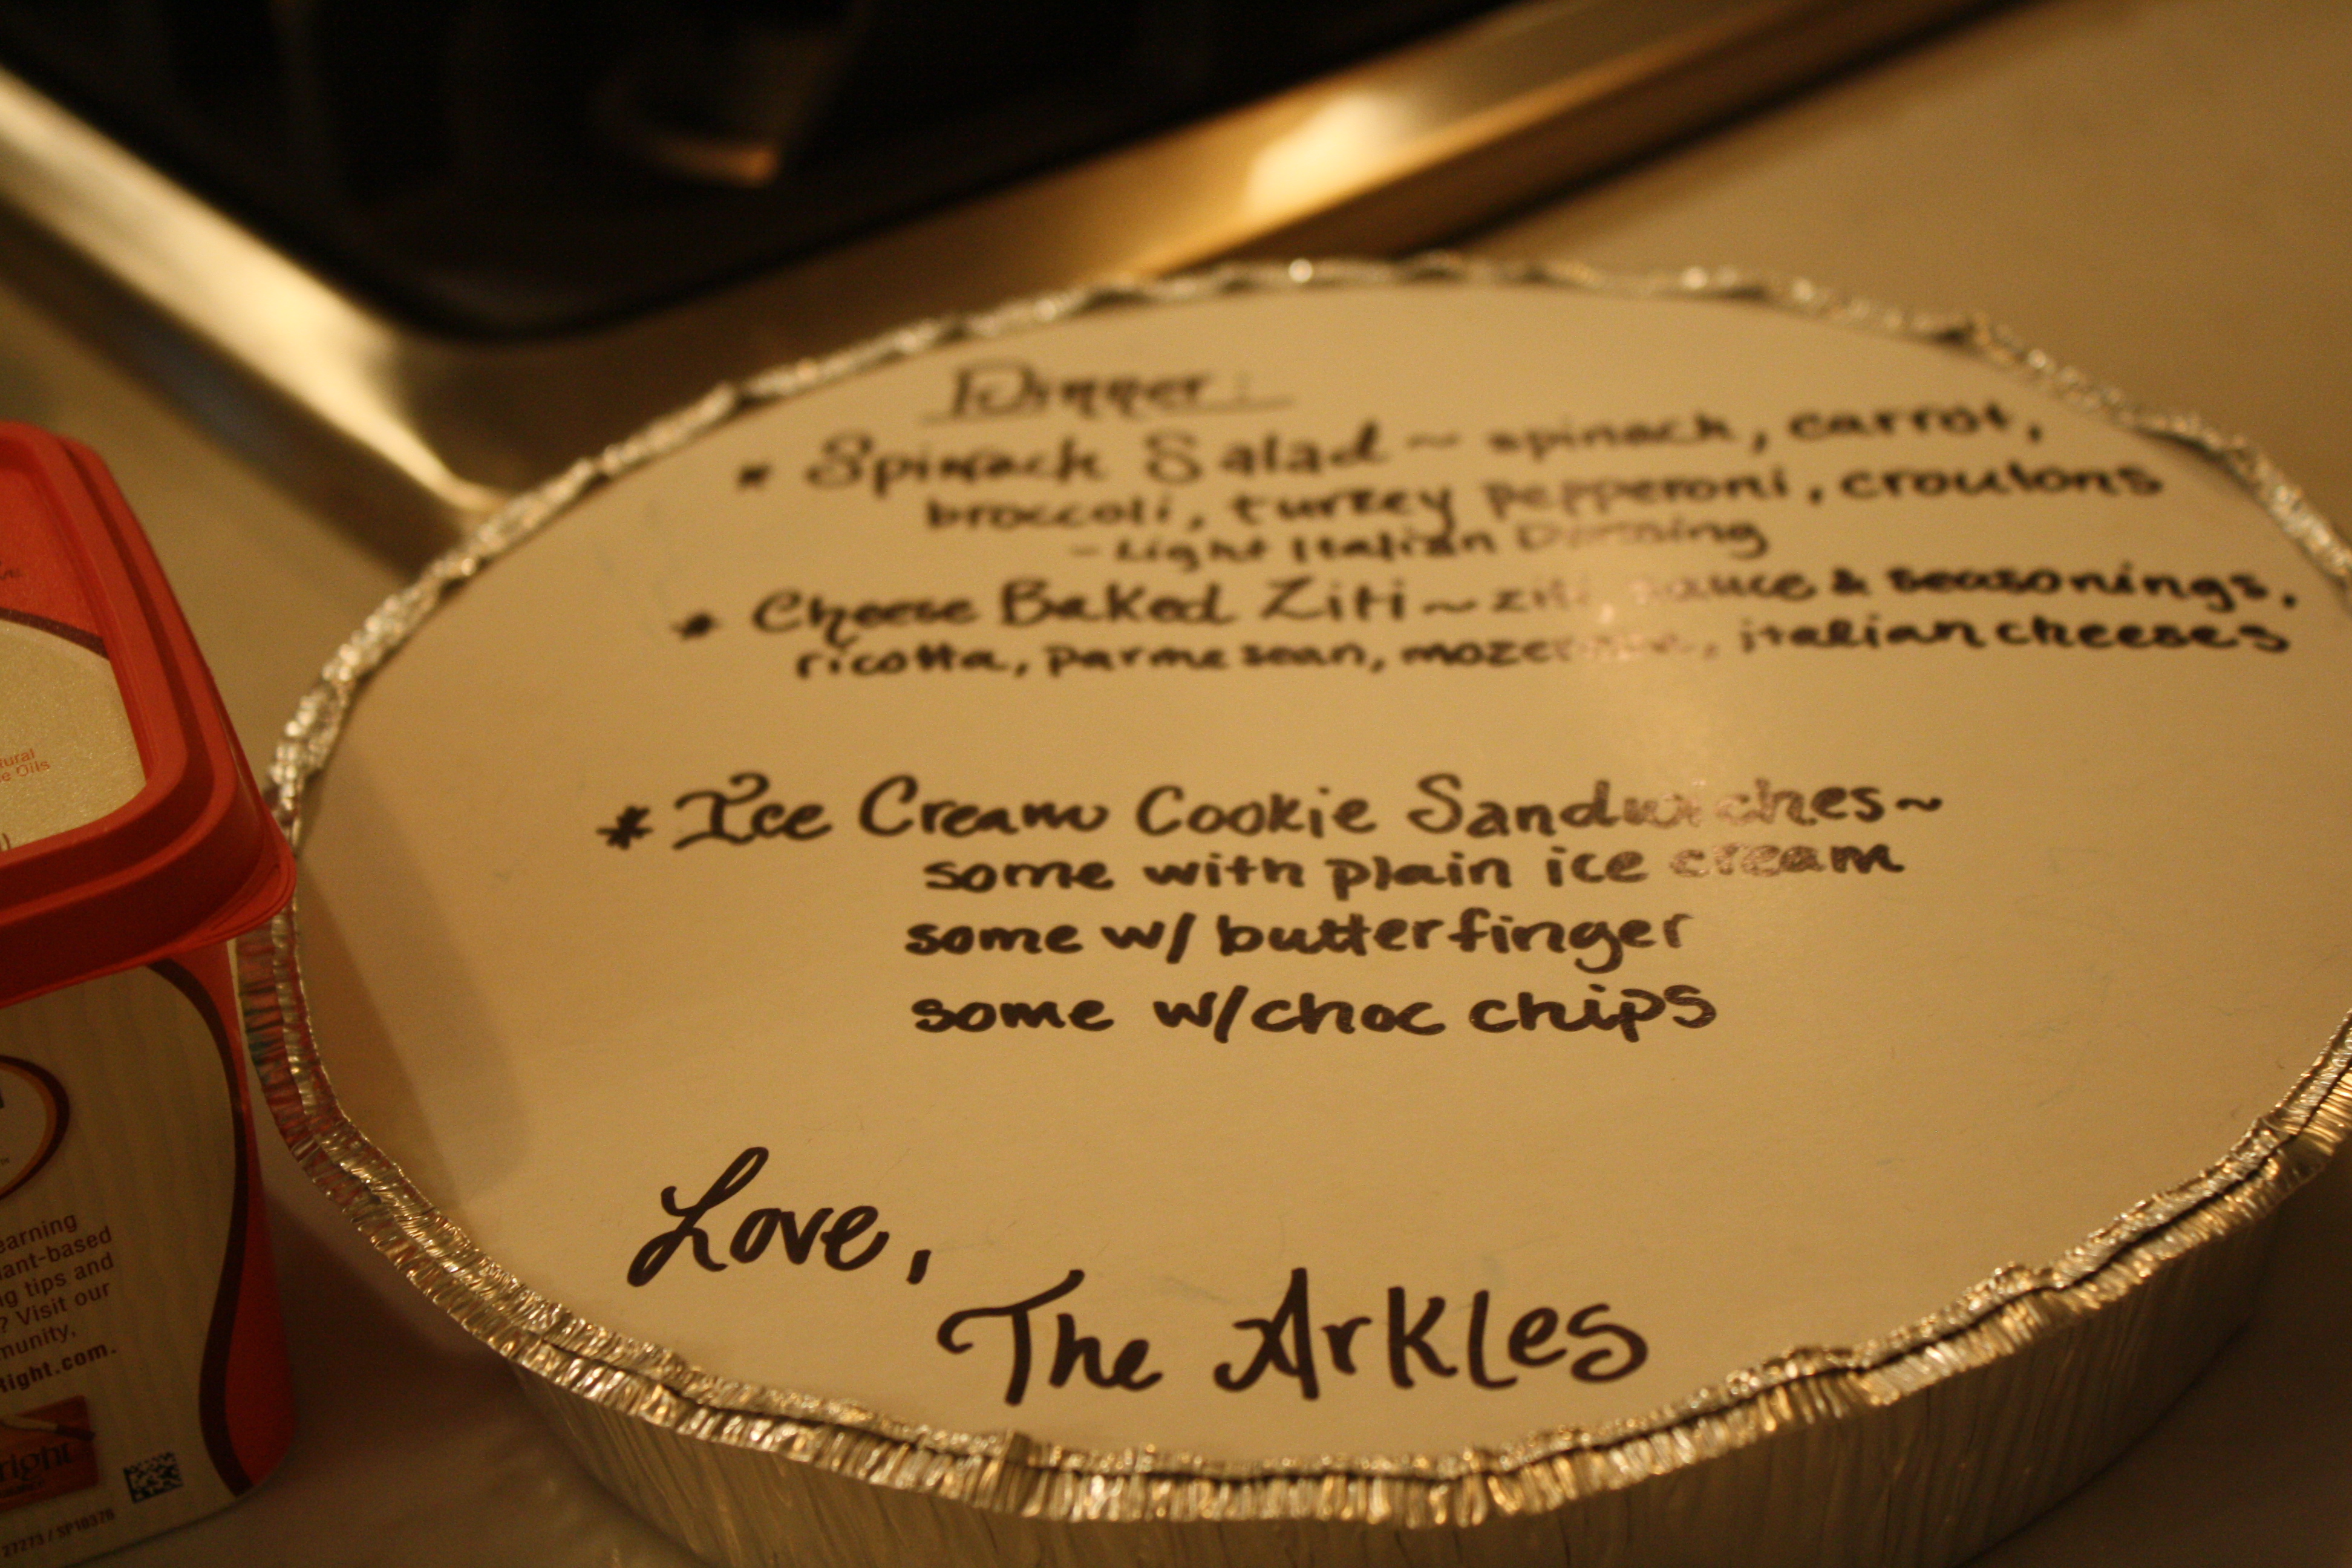 Dinner:
* Spinach Salad ~ spinach, carrot,
broccoli, turkey pepperoni, croutons
- Light Italian Dressing
* Cheese Baked Ziti ~ ziti, sauce & seasonings,
ricotta, parmesean, italian cheeses
* Ice Cream Cookie Sandwiches ~
some with plain ice cream
some w/ butterfinger
some w/choc chips
Love,
The Arkles
tural
e Oils
earning
ant-based
g tips and
? Visit our
munity,
Right.com.
right
27273 / SP10376